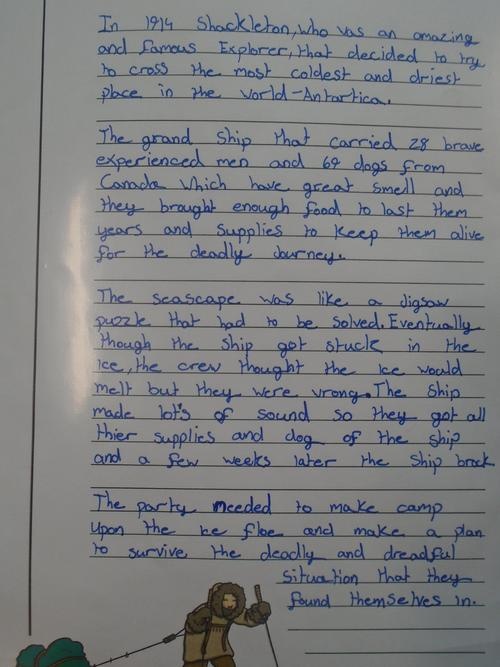 In 1914 Shackleton, who was an amazing
and famous Explorer, that decided to try
to cross the most coldest and driest
place in the world-Antartica.
The grand ship that carried 28 brave
experienced men and 69 dogs from
Canada which have great smell and
they brought enough food to last them
years and supplies to keep them alive
for the deadly Journey.
The seascape was like a Jigsaw
puzzle that had to be solved. Eventually
though the ship got stuck in the
ice, the crew thought the ice would
melt but they were wrong. The ship
made lot's of sound so they got all
thier supplies and dog of the ship
and a few weeks later the ship brock
The party needed to make camp
upon the ice floe and make a plan
to survive the deadly and dreadful
situation that they
found themselves in.